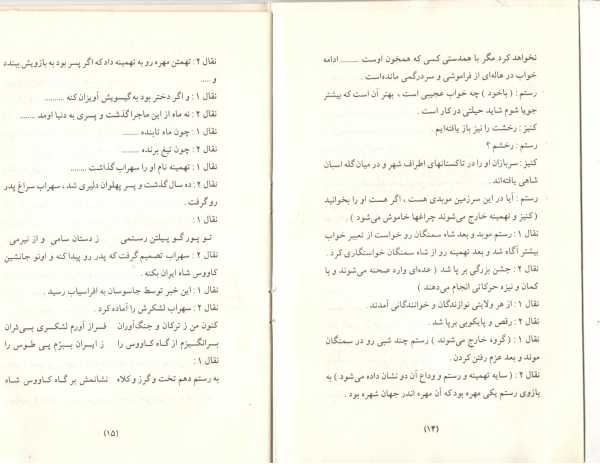 نخواهد کرد مگر با همدستی کسی که همخون اوست ......... ادامه
خواب در هاله‌ای از فراموشی و سردرگمی مانده‌است .
رستم : ( باخود ) چه خواب عجیبی است ، بهتر آن است که بیشتر
جویا شوم شاید حیلتی در کار است .
کنیز : رخشت را نیز باز یافته‌ایم .
رستم : رخشم ؟
کنیز : سربازان او را در تاکستانهای اطراف شهر و در میان گله اسبان
شاهی یافته‌اند .
رستم : آیا در این سرزمین موبدی هست ، اگر هست او را بخوانید
( کنیز و تهمینه خارج می‌شوند چراغها خاموش می‌شود ) .
نقال ۱ : رستم موبد و بعد شاه سمنگان رو خواست از تعبیر خواب
بیشتر آگاه شد و بعد تهمینه رو از شاه سمنگان خواستگاری کرد .
نقال ۲ : جشن بزرگی بر پا شد ( عده‌ای وارد صحنه می‌شوند و با
کمان و نیزه حرکاتی انجام می‌دهند )
نقال ۱ : از هر ولایتی نوازندگان و خوانندگانی آمدند .
نقال ۲ : رقص و پایکوبی برپا شد .
نقال ۱ : ( گروه خارج می‌شوند ) رستم چند شبی رو در سمنگان
موند و بعد عزم رفتن کردن .
نقال ۲ : ( سایه تهمینه و رستم و وداع آن دو نشان داده می‌شود ) به
بازوی رستم یکی مهره بود که آن مهره اندر جهان شهره بود .
(۱۴)
نقال ۲ : تهمتن مهره رو به تهمینه داد که اگر پسر بود به بازویش ببندد
و .....
نقال ۱ : و اگر دختر بود به گیسویش آویزان کنه .........
نقال ۲ : نه ماه از این ماجرا گذشت و پسری به دنیا اومد .......
نقال ۱ : چون ماه تابنده ........
نقال ۲ : چون تیغ برنده .......
نقال ۱ : تهمینه نام او را سهراب گذاشت ........
نقال ۲ : ده سال گذشت و پسر پهلوان دلیری شد ، سهراب سراغ پدر
رو گرفت .
نقال ۱ :
تو پور گو پیلتن رستمی ز دستان سامی و از نیرمی
نقال ۲ : سهراب تصمیم گرفت که پدر رو پیدا کنه و اونو جانشین
کاووس شاه ایران بکنه .
نقال ۱ : این خبر توسط جاسوسان به افراسیاب رسید .
نقال ۲ : سهراب لشکرش را آماده کرد .
کنون من ز ترکان و جنگ‌آوران فراز آورم لشکری بی‌کران
برانگیزم از گاه کاووس را ز ایران ببرّم پی طوس را
نقال ۱ :
به رستم دهم تخت و گرز و کلاه نشانمش بر گاه کاووس شاه
(۱۵)